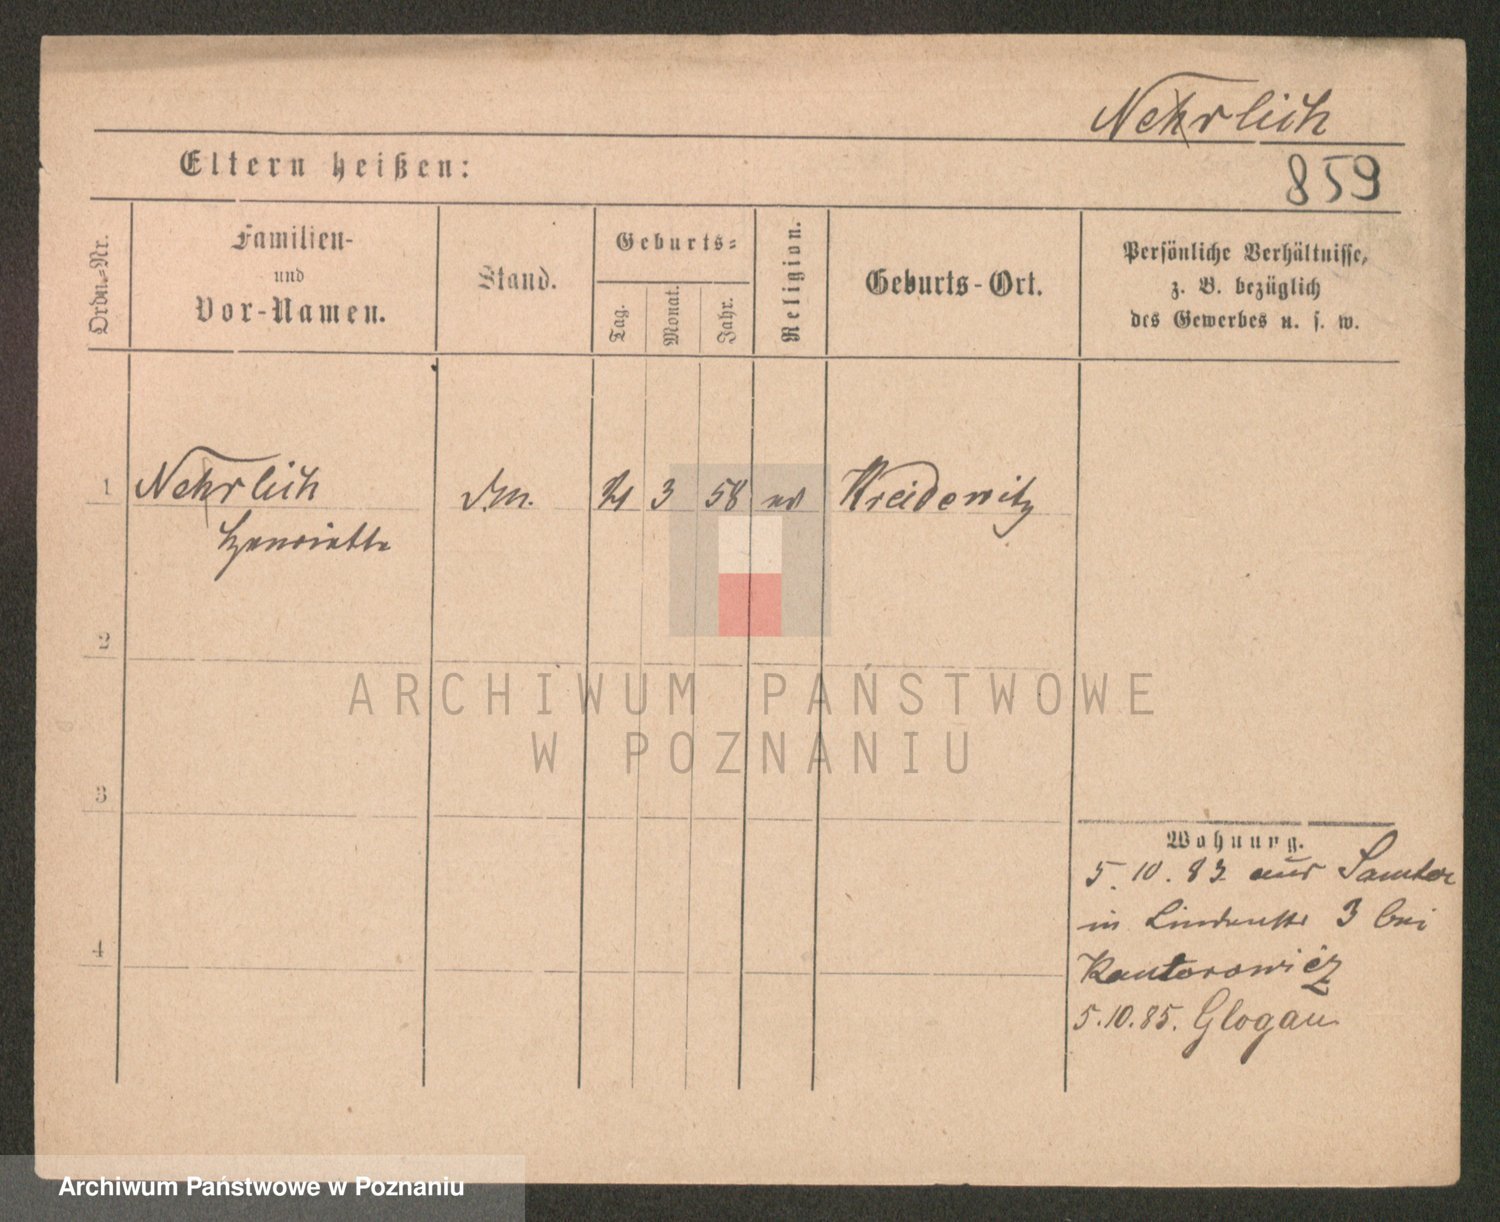 Nehrlich
Eltern heißen:
859
Ordn.-Nr.
Familien-
und
Vor-Namen.
Stand.
Geburts-
Tag.
Monat.
Jahr.
Religion.
Geburts-Ort.
Persönliche Verhältnisse,
z. B. bezüglich
des Gewerbes u. s. w.
1 Nehrlich 3 58 Kreidewitz
Henriette
2
3
4
Wohnung.
5.10.83 aus Samter
in Lindenstr 3 bei
Kantorowicz
5.10.85. Glogau
ARCHIWUM PAŃSTWOWE
W POZNANIU
Archiwum Państwowe w Poznaniu